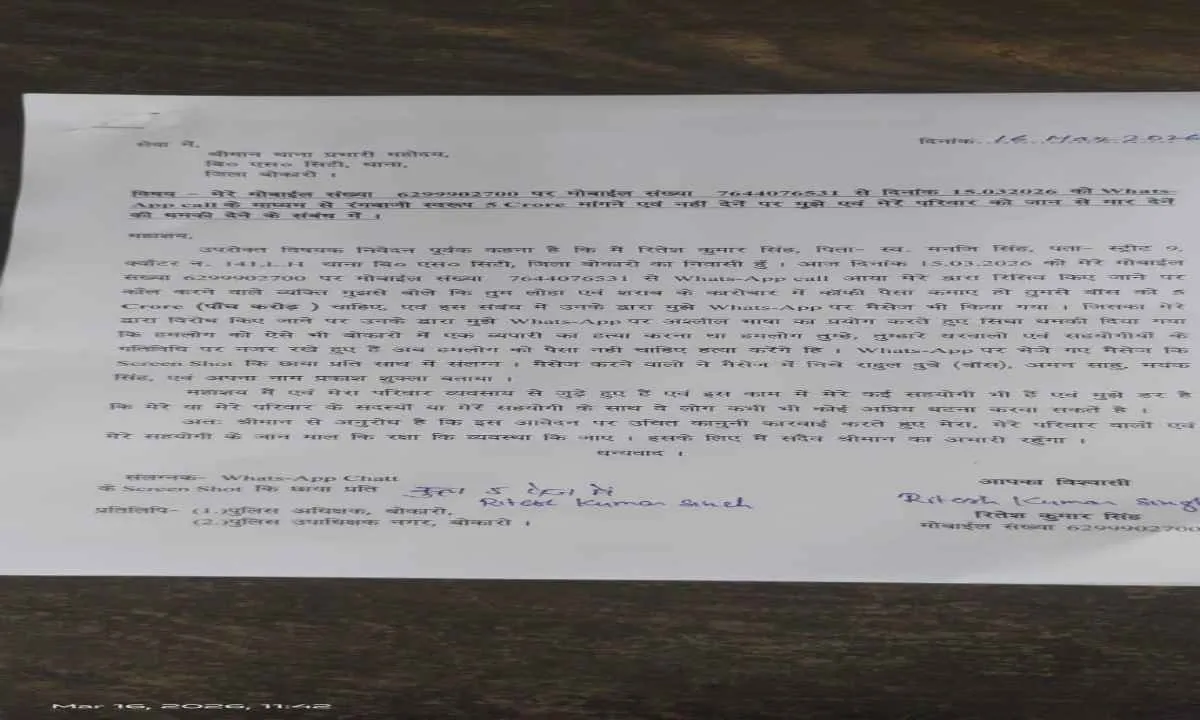 सेवा में,
दिनांक 16 Mar 2026
श्रीमान थाना प्रभारी महोदय,
बि० एस० सिटी, थाना,
जिला बोकारो ।
विषय - मेरे मोबाईल संख्या 6299902700 पर मोबाईल संख्या 7644076531 से दिनांक 15.032026 को Whats-
App call के माध्यम से रंगबाजी स्वरूप 5 Crore मांगने एवं नहीं देनें पर मुझे एवं मेरे परिवार को जान से मार देनें
की धमकी देने के संबंध में ।
महाशय,
उपरोक्त विषयक निवेदन पूर्वक कहना है कि मैं रितेश कुमार सिंह, पिता- स्व. मनजि सिंह, पता- स्ट्रीट 9,
क्वॉटर न. 141,L.H थाना बि० एस० सिटी, जिला बोकारो का निवासी हुँ । आज दिनांक 15.03.2026 को मेरे मोबाईल
संख्या 6299902700 पर मोबाईल संख्या 7644076531 से Whats-App call आया मेरे द्वारा रिसिव किए जाने पर
कॉल करने वाले व्यक्ति मुझसे बोले कि तुम लोहा एवं शराब के कारोबार में काफी पैसा कमाए हो तुमसे बॉस को 5
Crore (पाँच करोड़ ) चाहिए, एवं इस संबंध में उनके द्वारा मुझे Whats-App पर मैसेज भी किया गया । जिसका मेरे
द्वारा विरोध किए जाने पर उनके द्वारा मुझे Whats-App पर अश्लील भाषा का प्रयोग करते हुए सिधा धमकी दिया गया
कि हमलोग को ऐसे भी बोकारो में एक व्यपारी का हत्या करना था हमलोग तुम्हे, तुम्हारे घरवालो एवं सहयोगीयों के
गतिविधि पर नजर रखे हुए हैं अब हमलोग को पैसा नही चाहिए हत्या करेंगे हि । Whats-App पर भेजे गए मैसेज कि
Screen Shot कि छाया प्रति साथ में संलग्न । मैसेज करने वालो ने मैसेज में निचे राहुल दुबे (बॉस), अमन साहु, मयंक
सिंह, एवं अपना नाम प्रकाश शुक्ला बताया ।
महाशय मैं एवं मेरा परिवार व्यवसाय से जुड़े हुए हैं एवं इस काम में मेरे कई सहयोगी भी हैं एवं मुझे डर है
कि मेरे या मेरे परिवार के सदस्यों या मेरे सहयोगी के साथ वे लोग कभी भी कोई अप्रिय घटना करवा सकते है ।
अतः श्रीमान से अनुरोध है कि इस आवेदन पर उचित कानुनी कारवाई करते हुए मेरा, मेरे परिवार वालों एवं
मेरे सहयोगी के जान माल कि रक्षा कि व्यवस्था कि जाए । इसके लिए मैं सदैव श्रीमान का अभारी रहुँगा ।
धन्यवाद ।
संलग्नक- Whats-App Chatt
के Screen Shot कि छाया प्रति
Ritesh Kumar Singh
प्रतिलिपि- (1.)पुलिस अधिक्षक, बोकारो,
(2.)पुलिस उपाधिक्षक नगर, बोकारो ।
आपका विश्वासी
Ritesh Kumar Singh
रितेश कुमार सिंह
मोबाईल संख्या 6299902700
Mar 16, 2026, 11:42